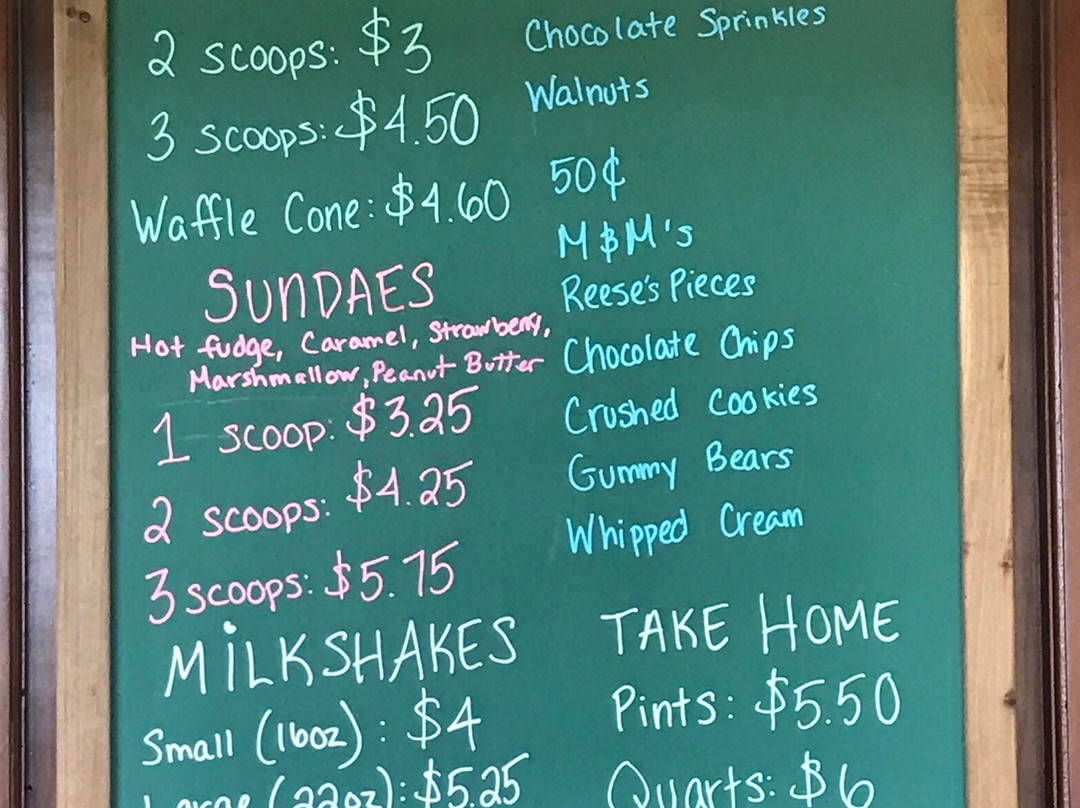 2 scoops: $3
3 scoops: $4.50
Waffle Cone: $4.60
SUNDAES
Hot fudge, Caramel, Strawberry,
Marshmallow, Peanut Butter
1 scoop: $3.25
2 scoops: $4.25
3 scoops: $5.75
MiLKSHAKES
Small (16oz): $4
Large (22oz): $5.25
Chocolate Sprinkles
Walnuts
50¢
M&M's
Reese's Pieces
Chocolate Chips
Crushed Cookies
Gummy Bears
Whipped Cream
TAKE HOME
Pints: $5.50
Quarts: $6